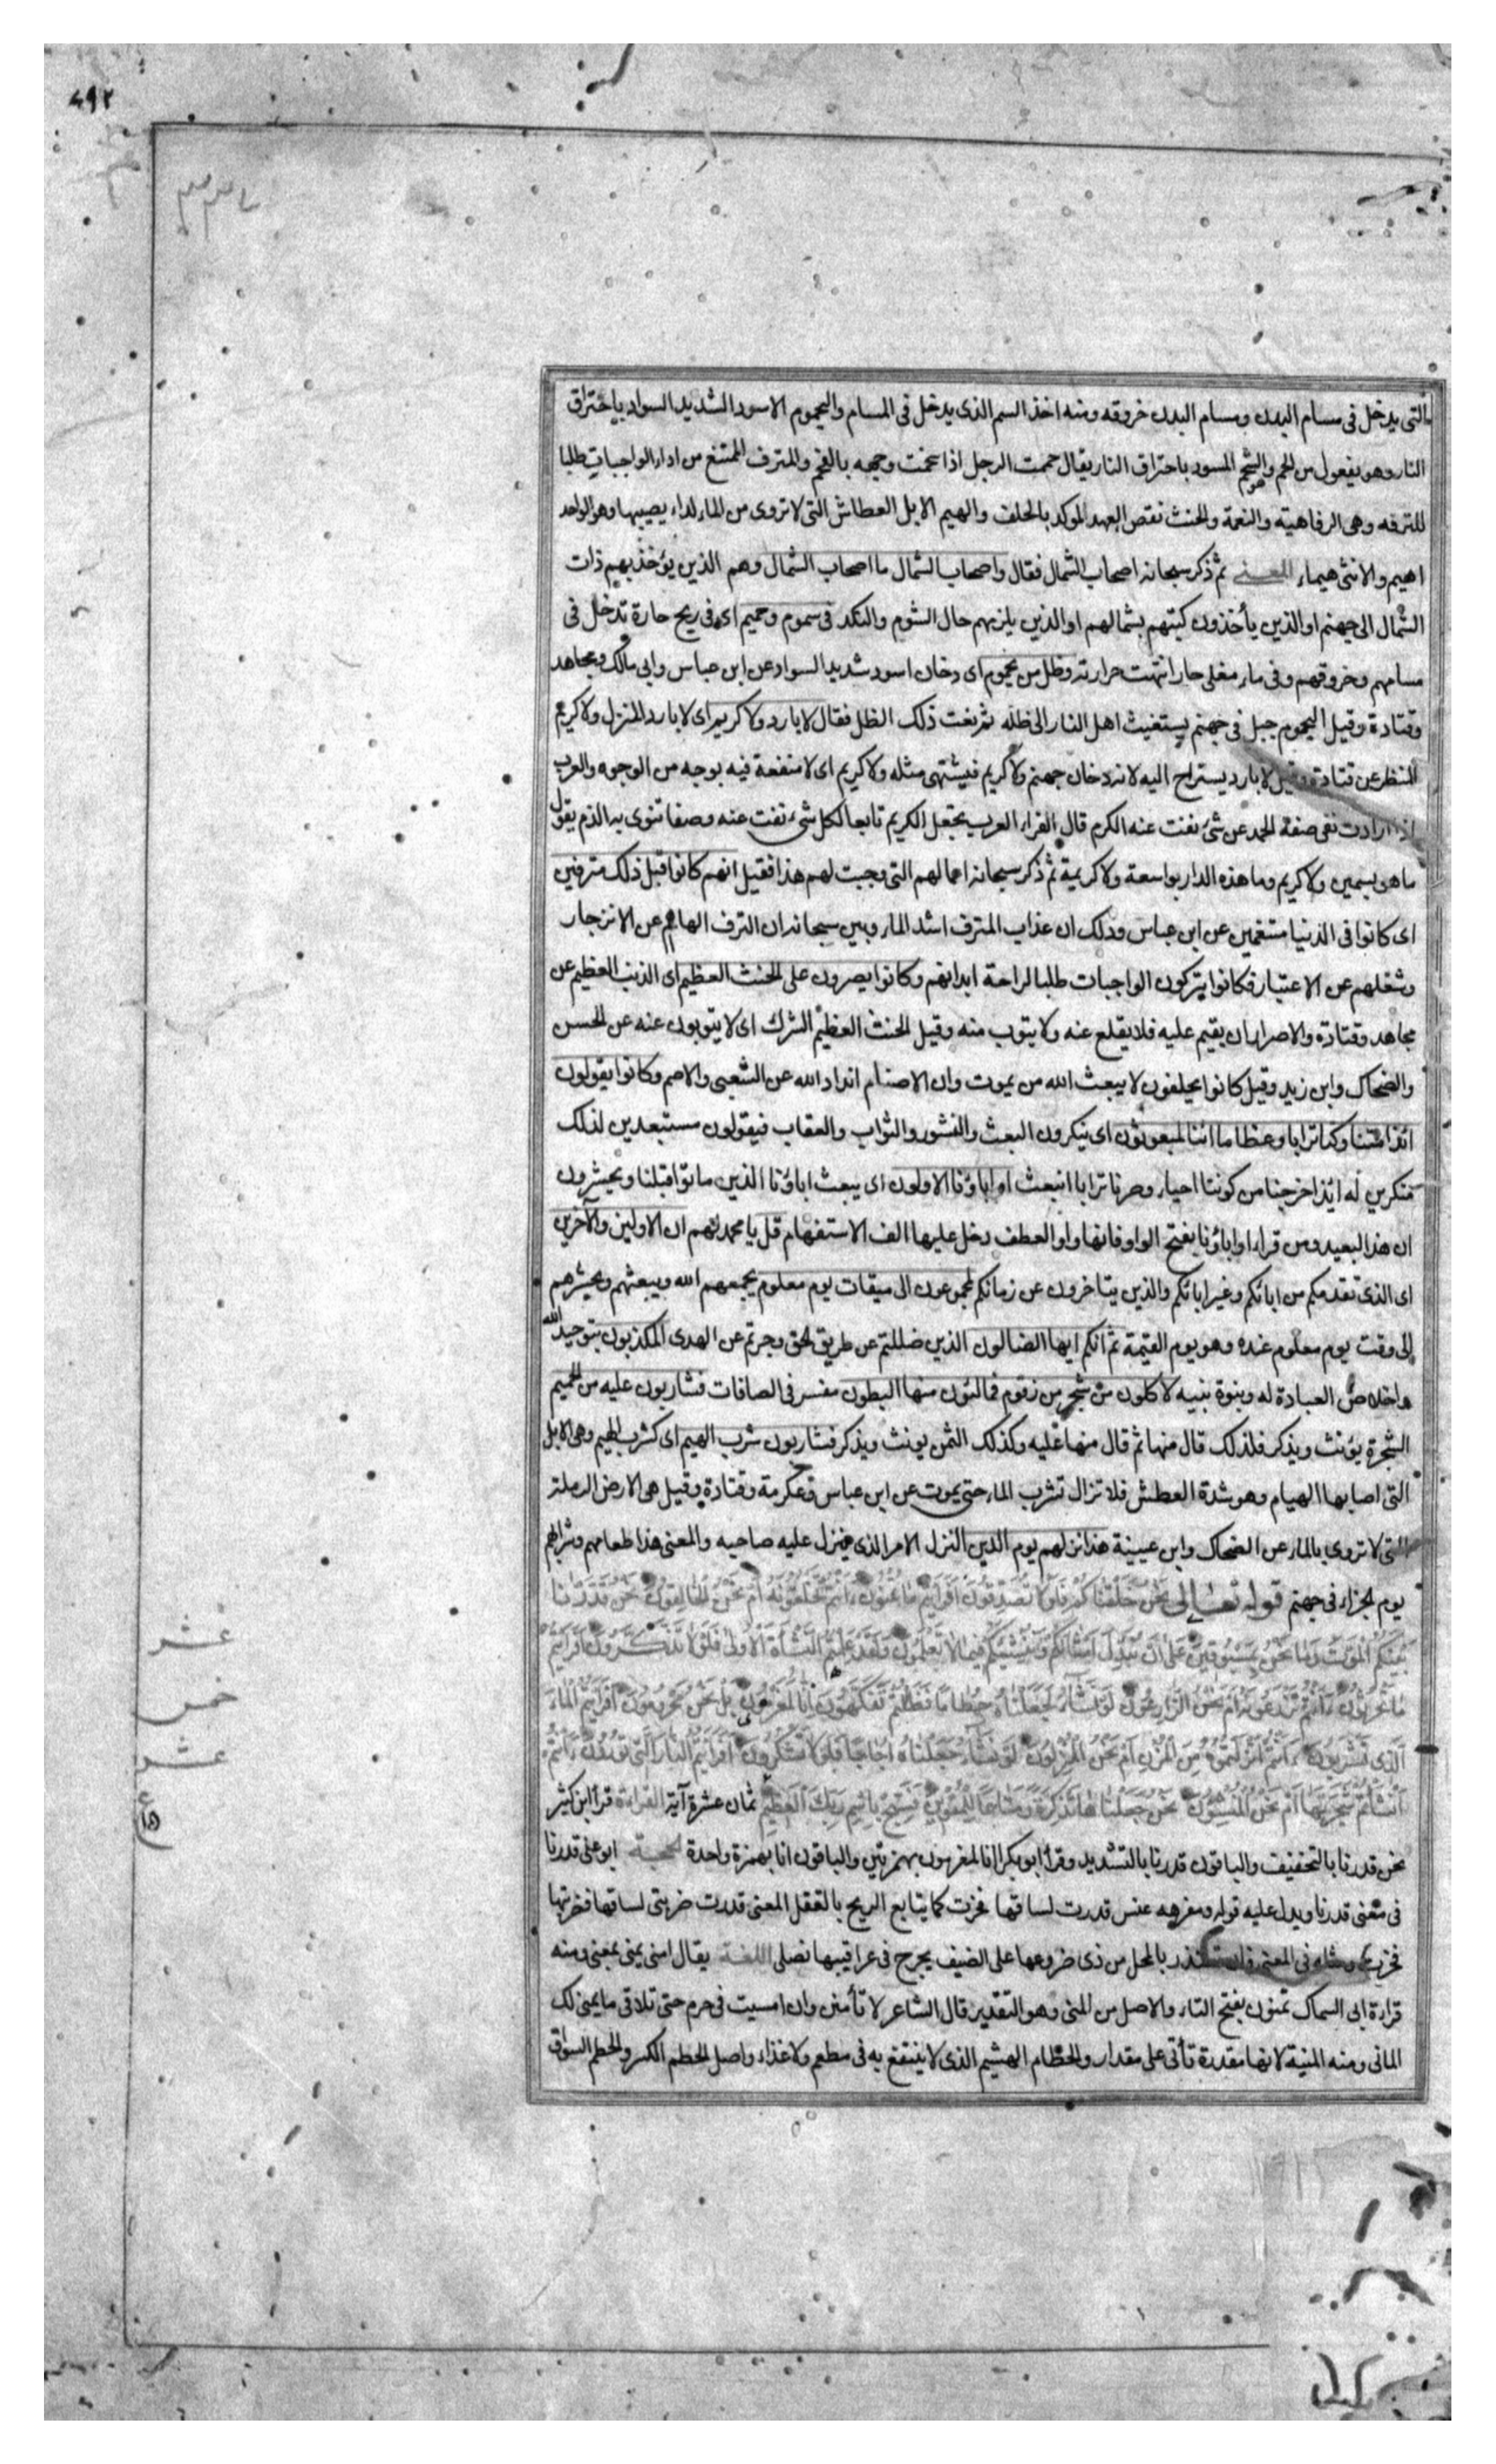 ٤٩٢
التى يدخل فى مسام البدن ومسام البدن خروقه ومنه اخذ السم الذى يدخل فى المسام واليحموم الاسود الشديد السواد باحتراق
النار وهو يفعول من الحم وهو الشحم المسود باحتراق النار يقال حممت الرجل اذا سخمت وجهه بالفحم والمترف الممتنع من اداء الواجبات طلبا
للترفه وهى الرفاهية والنعمة والحنث نقض العهد الموكد بالحلف والهيم الابل العطاش التى لا تروى من الماء لداء يصيبها وهو الواحد
اهيم والانثى هيماء المعنى ثم ذكر سبحانه اصحاب الشمال فقال واصحاب الشمال ما اصحاب الشمال وهم الذين يؤخذ بهم ذات
الشمال الى جهنم او الذين يأخذون كتبهم بشمالهم او الذين يلزمهم حال الشوم والنكد فى سموم وحميم اى فى ريح حارة تدخل فى
مسامهم وخروقهم وفى ماء مغلى حار انتهت حرارته وظل من يحموم اى دخان اسود شديد السواد عن ابن عباس وابى مالك ومجاهد
وقتادة وقيل اليحموم جبل فى جهنم يستغيث اهل النار الى ظله ثم نعت ذلك الظل فقال لا بارد ولا كريم اى لا بارد المنزل ولا كريم
المنظر عن قتادة وقيل لا بارد يستراح اليه لانه دخان جهنم ولا كريم فيشتهى مثله ولا كريم اى لا منفعة فيه بوجه من الوجوه والعرب
اذا ارادت نفى صفة الحمد عن شئ نفت عنه الكرم قال الفراء العرب يجعل الكريم تابعا لكل شىء نفت عنه وصفا تنوى به الذم يقول
ما هو بسمين ولا كريم وما هذه الدار بواسعة ولا كريمة ثم ذكر سبحانه اعمالهم التى وجبت لهم هذا فقيل انهم كانوا قبل ذلك مترفين
اى كانوا فى الدنيا متنعمين عن ابن عباس وذلك ان عذاب المترف اشد الما وبين سبحانه ان الترف الهاهم عن الانزجار
وشغلهم عن الاعتبار فكانوا يتركون الواجبات طلبا لراحة ابدانهم وكانوا يصرون على الحنث العظيم اى الذنب العظيم عن
مجاهد وقتادة والاصرار ان يقيم عليه فلا يقلع عنه ولا يتوب منه وقيل الحنث العظيم الشرك اى لا يتوبون عنه عن الحسن
والضحاك وابن زيد وقيل كانوا يحلفون لا يبعث الله من يموت وان الاصنام انداد الله عن الشعبى والاصم وكانوا يقولون
ائذا متنا وكنا ترابا وعظاما ائنا لمبعوثون اى ينكرون البعث والنشور والثواب والعقاب فيقولون مستبعدين لذلك
منكرين له ائذا خرجنا من كوننا احياء وصرنا ترابا انبعث او اباؤنا الاولون اى يبعث اباؤنا الذين ماتوا قبلنا ويحشرون
ان هذا لبعيد ومن قراء او اباؤنا بفتح الواو فانها واو العطف دخل عليها الف الاستفهام قل يا محمد لهم ان الاولين والآخرين
اى الذى تقدمكم من ابائكم وغير ابائكم والذين يتاخرون عن زمانكم لمجموعون الى ميقات يوم معلوم يجمعهم الله ويبعثهم ويحشرهم
الى وقت يوم معلوم عنده وهو يوم القيمة ثم انكم ايها الضالون الذين ضللتم عن طريق الحق وجرتم عن الهدى المكذبون بتوحيد الله
واخلاص العبادة له وبنوة نبيه لآكلون من شجر من زقوم فمالئون منها البطون مفسر فى الصافات فشاربون عليه من الحميم
الشجرة يؤنث ويذكر فلذلك قال منها ثم قال منها عليه وكذلك الثمن يونث ويذكر فشاربون شرب الهيم اى كشرب الهيم وهى الابل
التى اصابها الهيام وهو شدة العطش فلا تزال تشرب الماء حتى يموت عن ابن عباس وعكرمة وقتادة وقيل هى الارض الرملة
التى لا تروى بالماء عن الضحاك وابن عيينة هذا نزلهم يوم الدين النزل الامر الذى ينزل عليه صاحبه والمعنى هذا طعامهم وشرابهم
يوم الجزاء فى جهنم قوله تعالى نَحْنُ خَلَقْنَاكُمْ فَلَوْلَا تُصَدِّقُونَ أَفَرَأَيْتُمْ مَا تُمْنُونَ ءَأَنْتُمْ تَخْلُقُونَهُ أَمْ نَحْنُ الْخَالِقُونَ نَحْنُ قَدَّرْنَا
بَيْنَكُمُ الْمَوْتَ وَمَا نَحْنُ بِمَسْبُوقِينَ عَلَى أَنْ نُبَدِّلَ أَمْثَالَكُمْ وَنُنْشِئَكُمْ فِيمَا لَا تَعْلَمُونَ وَلَقَدْ عَلِمْتُمُ النَّشْأَةَ الْأُولَى فَلَوْلَا تَذَكَّرُونَ أَفَرَأَيْتُمْ
مَا تَحْرُثُونَ ءَأَنْتُمْ تَزْرَعُونَهُ أَمْ نَحْنُ الزَّارِعُونَ لَوْ نَشَاءُ لَجَعَلْنَاهُ حُطَامًا فَظَلْتُمْ تَفَكَّهُونَ إِنَّا لَمُغْرَمُونَ بَلْ نَحْنُ مَحْرُومُونَ أَفَرَأَيْتُمُ الْمَاءَ
الَّذِي تَشْرَبُونَ ءَأَنْتُمْ أَنْزَلْتُمُوهُ مِنَ الْمُزْنِ أَمْ نَحْنُ الْمُنْزِلُونَ لَوْ نَشَاءُ جَعَلْنَاهُ أُجَاجًا فَلَوْلَا تَشْكُرُونَ أَفَرَأَيْتُمُ النَّارَ الَّتِي تُورُونَ ءَأَنْتُمْ
أَنْشَأْتُمْ شَجَرَتَهَا أَمْ نَحْنُ الْمُنْشِؤُنَ نَحْنُ جَعَلْنَاهَا تَذْكِرَةً وَمَتَاعًا لِلْمُقْوِينَ فَسَبِّحْ بِاسْمِ رَبِّكَ الْعَظِيمِ ثمان عشرة آية القراءة قرأ ابن كثير
نحن قدرنا بالتخفيف والباقون قدرنا بالتشديد وقرأ ابو بكر ائنا لمغرمون بهمزتين والباقون انا بهمزة واحدة الحجة ابو على قدرنا
فى معنى قدرنا ويدل عليه قوله ومفرهه عنس قدرت لساقها فخرت كما يتابع الريح بالقفل المعنى قدرت ضربتى لساقها فضربتها
فخرت ومثله فى المعنى فان تعتذر بالمحل من ذى ضروعها على الضيف يجرح فى عراقيبها نصلى اللغة يقال امنى يمنى بمعنى ومنه
قراءة ابى السماك تمنون بفتح التاء والاصل من المنى وهو التقدير قال الشاعر لا تأمنن وان امسيت فى حرم حتى تلاقى ما يمنى لك
المانى ومنه المنية لانها مقدرة تأتى على مقدار والحطام الهشيم الذى لا ينتفع به فى مطعم ولا غذاء واصل الحطم الكسر والحطم السواق
عشر
خمس
عشر